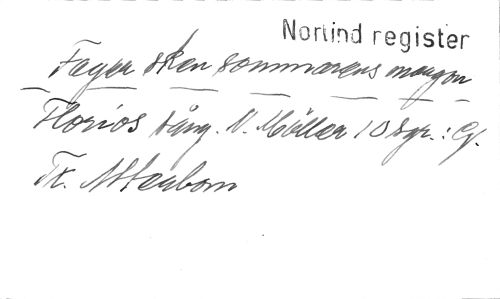 Norlind register
Fager sken sommarens morgon
Florios sång. N. Möller 10 sgr.: Cg.
Tx. Atterbom